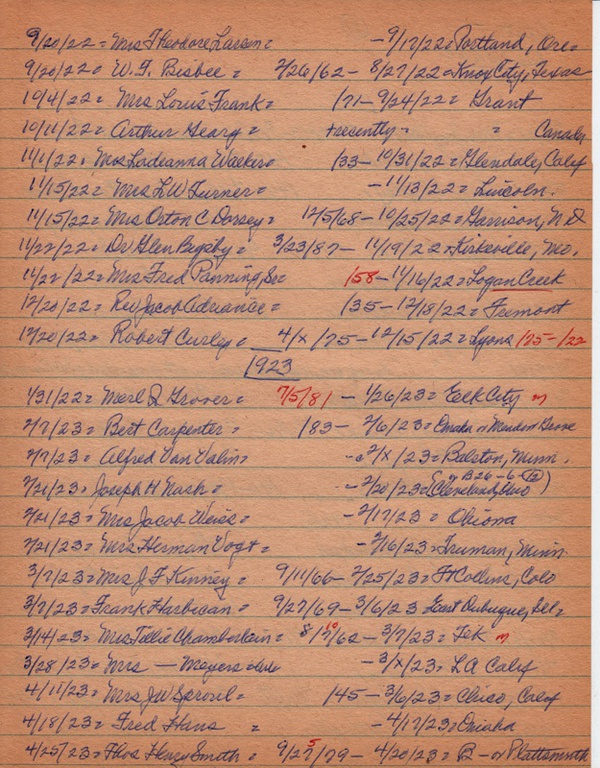 9/20/22 = Mrs Theodore Larsen = - 9/17/22 = Portland, Ore =
9/20/22 = W. F. Bisbee = 2/26/62 - 8/27/22 = Knox City, Texas
10/4/22 = Mrs Louis Frank = /71 - 9/24/22 = Grant
10/11/22 = Arthur Geary = + recently = = Canada
11/1/22 = Mrs Ladeanna Walker = /33 - 10/31/22 = Glendale, Calif
11/15/22 = Mrs L W Turner = - 11/13/22 = Lincoln.
11/15/22 = Mrs Orton C Dorsey = 12/5/68 - 10/25/22 = Garrison, N D
11/22/22 = Dr Glen Bigsby = 3/23/87 - 11/19/22 = Kirksville, Mo.
11/22/22 = Mrs Fred Panning, Sr = /58 - 11/16/22 = Logan Creek
12/20/22 = Rev Jacob Adriance = /35 - 12/18/22 = Fremont
12/20/22 = Robert Curley = 4/x/75 - 12/15/22 = Lyons /75 - /22
1923
1/31/22 = Merl D Grover = 7/5/81 - 1/26/23 = Elk City m
2/7/23 = Bert Carpenter = /83 - 2/6/23 = Omaha or Meadow Grove
2/7/23 = Alfred Van Valin = - 2/x/23 = Balaton, Minn.
2/21/23 = Joseph H Nash = - 2/20/23 = (Cleveland, Ohio) B26-6-12
2/21/23 = Mrs Jacob Weiss = - 2/17/23 = Ohiowa
2/21/23 = Mrs Herman Vogt = - 2/16/23 = Truman, Minn.
3/7/23 = Mrs J F Kinney = 9/11/66 - 2/25/23 = Ft Collins, Colo
3/7/23 = Frank Harbican = 9/27/69 - 3/6/23 East Dubuque, Ill =
3/14/23 = Mrs Tillie Chamberlain = 8/ /62 - 3/7/23 = Tek m
3/28/23 = Mrs — Meyers = - 3/x/23 = LA Calif
4/11/23 = Mrs J W Sproul = /45 - 3/6/23 = Chico, Calif
4/18/23 = Fred Hans = - 4/17/23 = Omaha
4/25/23 = Thos Henry Smith = 9/2 /79 - 4/20/23 = B - or Plattsmouth